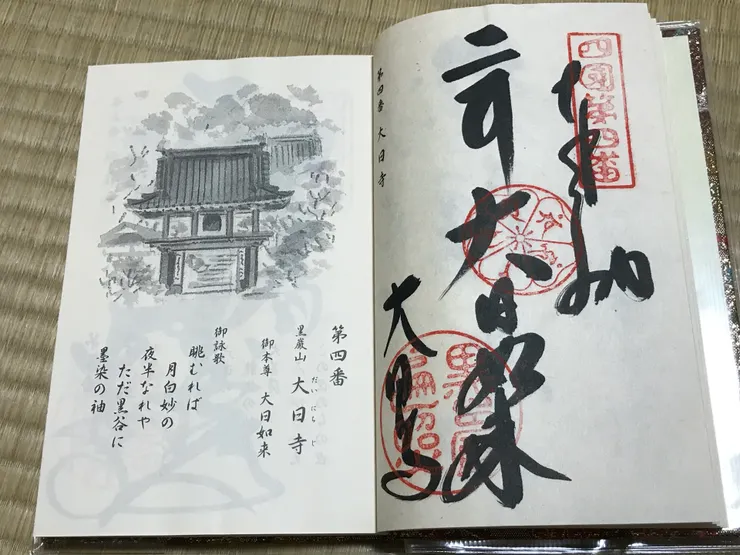 第四番
黒巌山 大日寺
だいにちじ
御本尊 大日如来
御詠歌
眺むれば
月白妙の
夜半なれや
ただ黒谷に
墨染の袖
第四番 大日寺
四国第四番
奉拝
大日如来
大日寺